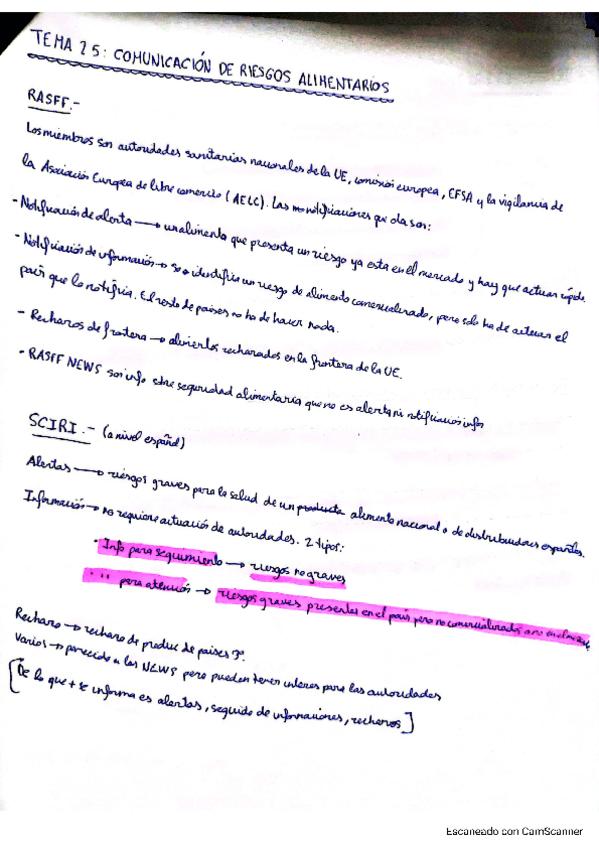 TEMA 25: COMUNICACIÓN DE RIESGOS ALIMENTARIOS
RASFF.-
Los miembros son autoridades sanitarias nacionales de la UE, comisión europea, EFSA y la vigilancia de
la Asociación Europea de libre comercio (AELC). Las notificaciones que da son:
- Notificación de alerta → un alimento que presenta un riesgo ya esta en el mercado y hay que actuar rápido.
- Notificación de información → se identifica un riesgo de alimento comercializado, pero solo ha de actuar el
país que lo notifica. El resto de países no ha de hacer nada.
- Rechazos de frontera → alimentos rechazados en la frontera de la UE.
- RASFF NEWS son info sobre seguridad alimentaria que no es alerta ni notificacion info
SCIRI.- (a nivel español)
Alertas → riesgos graves para la salud de un producto alimento nacional o de distribuidores españoles.
Información → no requiere actuación de autoridades. 2 tipos:
· Info para seguimiento → riesgos no graves
· " para atención → riesgos graves presentes en el país pero no comercializados
Rechazo → rechazo de produc de países 3º.
Varios → parecido a las NEWS pero pueden tener interes para las autoridades
[De lo que + se informa es alertas, seguido de informaciones, rechazos]
Escaneado con CamScanner